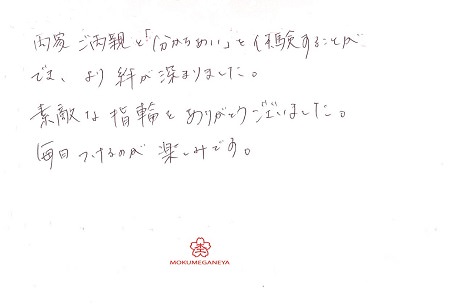 両家ご両親と「分かちあい」を体験することが
でき、より絆が深まりました。
素敵な指輪をありがとうございました。
毎日つけるのが楽しみです。
MOKUMEGANEYA